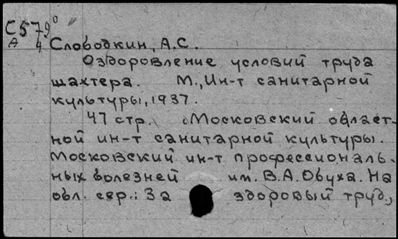 С579⁰
А 4
Слободкин, А.С.
Оздоровление условий труда
шахтера. М., Ин-т санитарной
культуры, 1937.
47 стр. (Московский област-
ной ин-т санитарной культуры.
Московский ин-т профессиональ-
ных болезней им. В.А. Обуха. На
обл. сер.: За здоровый труд,